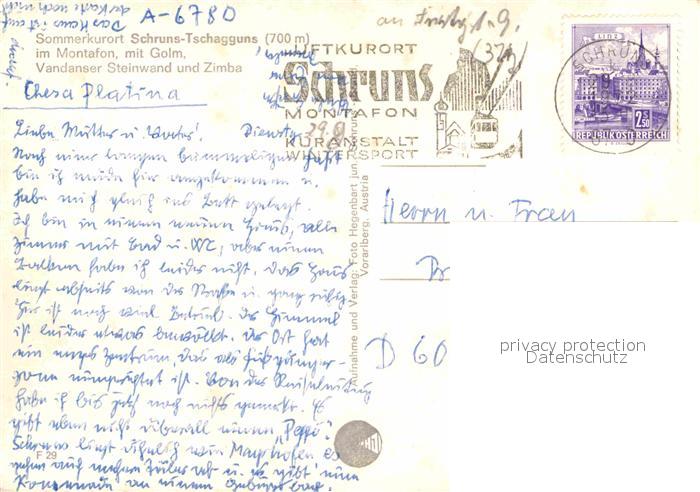 A-6780
Das Haus ist auf
der Karte noch nicht
Sommerkurort Schruns-Tschagguns (700 m)
im Montafon, mit Golm,
Vandanser Steinwand und Zimba
Chesa Platina
Liebe Mutter u. Vater! Dienstag
29.8.
Nach einer langen Bummeligen Fahrt
bin ich müde hier angekommen u.
habe mich gleich ins Bett gelegt.
Ich bin in einem neuen Haus, alle
Zimmer mit Bad u. WC, aber einen
Balkon habe ich leider nicht. Das Haus
liegt abseits von der Straße u. ganz ruhig.
Hier ist noch viel Betrieb. Der Himmel
ist leider etwas bewölkt. Der Ort hat
ein Zentrum, das als Fußgänger-
zone eingerichtet ist. Von der Reiseleitung
habe ich bis jetzt noch nichts gemerkt. Es
gibt eben nicht überall einen "Peppo".
Schruns liegt ähnlich wie Mayrhofen es
gehen auch mehrere Täler ab u. es gibt eine
Promenade an einem Gebirgsbach.
F 29
Aufnahme und Verlag: Foto Hegenbart jun., Schruns
Vorarlberg, Austria
LUFTKURORT
Schruns
MONTAFON
KURANSTALT
WINTERSPORT
an
1.9.
LINZ
SCHRUNS
2.50
REPUBLIK ÖSTERREICH
Herrn u. Frau
Dr
D 60
privacy protection
Datenschutz